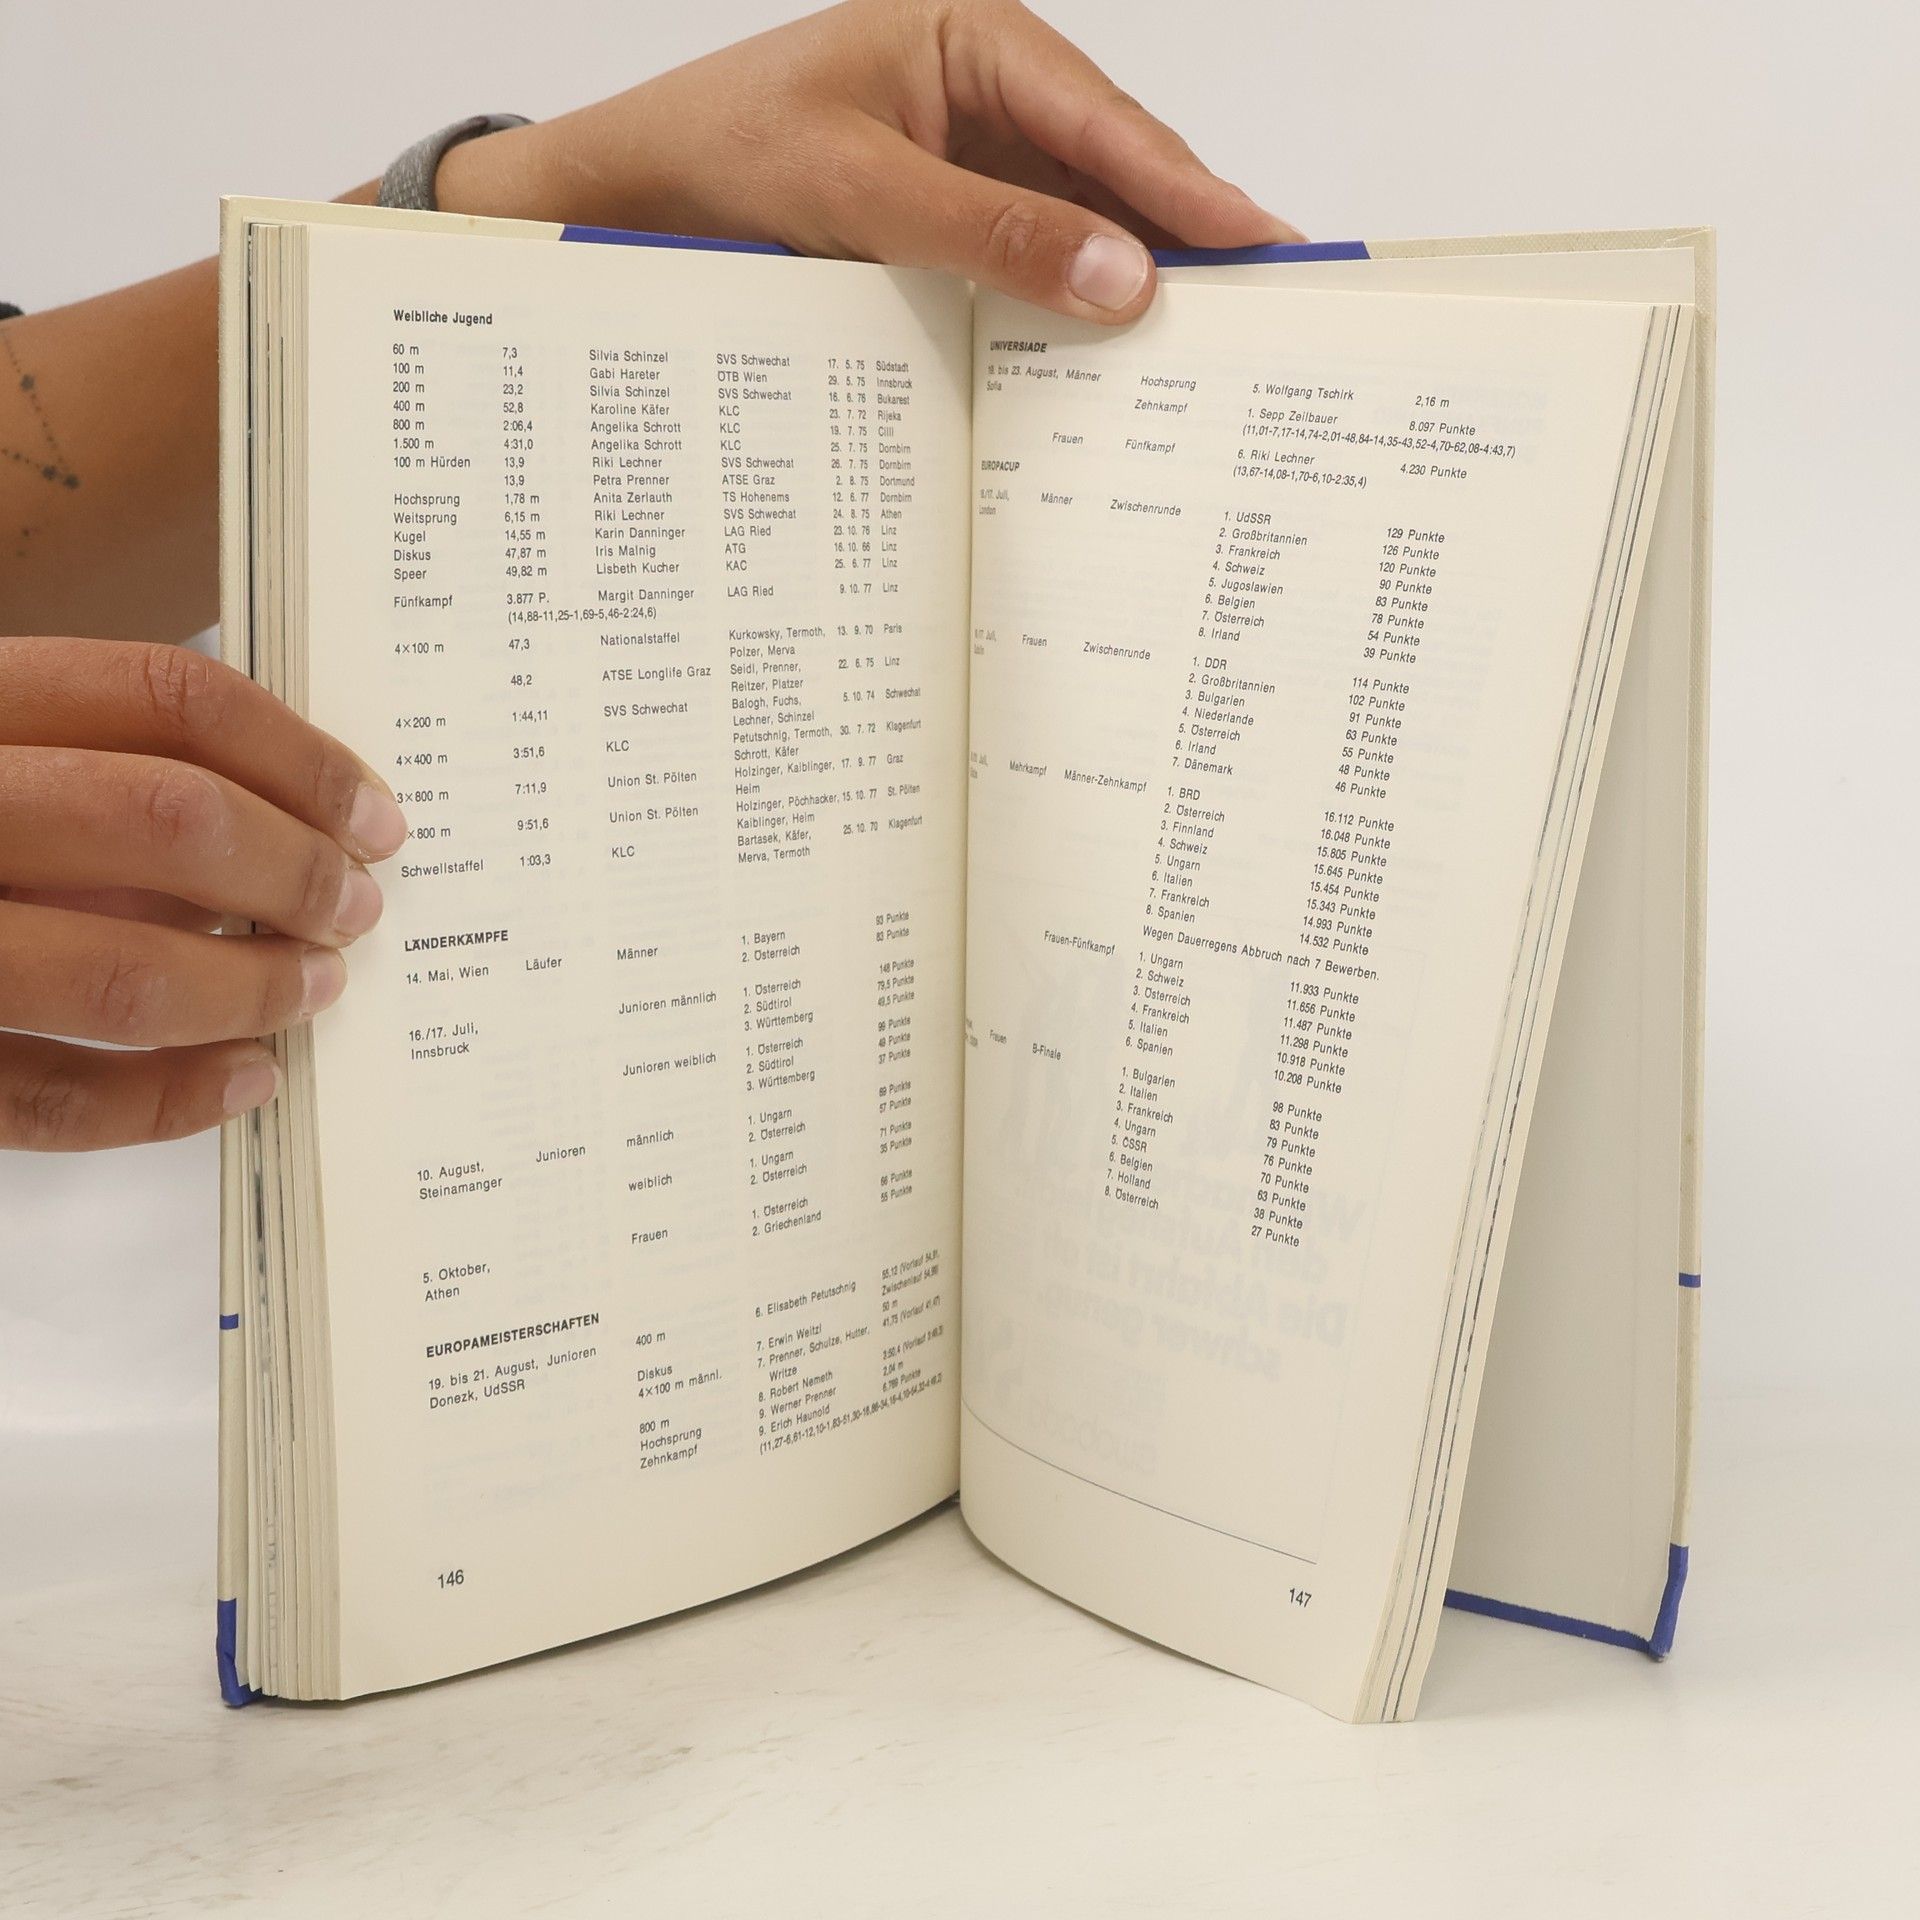 Weibliche Jugend
60 m 7,3 Silvia Schinzel SVS Schwechat 17. 5. 75 Südstadt
100 m 11,4 Gabi Hareter ÖTB Wien 29. 5. 75 Innsbruck
200 m 23,2 Silvia Schinzel SVS Schwechat 16. 6. 76 Bukarest
400 m 52,8 Karoline Käfer KLC 23. 7. 72 Rijeka
800 m 2:06,4 Angelika Schrott KLC 19. 7. 75 Cilli
1.500 m 4:31,0 Angelika Schrott KLC 25. 7. 75 Dornbirn
100 m Hürden 13,9 Riki Lechner SVS Schwechat 26. 7. 75 Dornbirn
13,9 Petra Prenner ATSE Graz 2. 8. 75 Dortmund
Hochsprung 1,78 m Anita Zerlauth TS Hohenems 12. 6. 77 Dornbirn
Weitsprung 6,15 m Riki Lechner SVS Schwechat 24. 8. 75 Athen
Kugel 14,55 m Karin Danninger LAG Ried 23. 10. 76 Linz
Diskus 47,87 m Iris Malnig ATG 16. 10. 66 Linz
Speer 49,82 m Lisbeth Kucher KAC 25. 6. 77 Linz
Fünfkampf 3.877 P. Margit Danninger LAG Ried 9. 10. 77 Linz
(14,88-11,25-1,69-5,46-2:24,6)
4×100 m 47,3 Nationalstaffel Kurkowsky, Termoth, 13. 9. 70 Paris
Polzer, Merva
48,2 ATSE Longlife Graz Seidl, Prenner, 22. 6. 75 Linz
Reitzer, Platzer
4×200 m 1:44,11 SVS Schwechat Balogh, Fuchs, 5. 10. 74 Schwechat
Lechner, Schinzel
4×400 m 3:51,6 KLC Petutschnig, Termoth, 30. 7. 72 Klagenfurt
Schrott, Käfer
3×800 m 7:11,9 Union St. Pölten Holzinger, Kaiblinger, 17. 9. 77 Graz
Heim
×800 m 9:51,6 Union St. Pölten Holzinger, Pöchhacker, 15. 10. 77 St. Pölten
Kaiblinger, Heim
Schwellstaffel 1:03,3 KLC Bartasek, Käfer, 25. 10. 70 Klagenfurt
Merva, Termoth
LÄNDERKÄMPFE
14. Mai, Wien Läufer Männer 1. Bayern 93 Punkte
2. Österreich 83 Punkte
16./17. Juli, Junioren männlich 1. Österreich 148 Punkte
Innsbruck 2. Südtirol 79,5 Punkte
3. Württemberg 49,5 Punkte
Junioren weiblich 1. Österreich 99 Punkte
2. Südtirol 49 Punkte
3. Württemberg 37 Punkte
10. August, Junioren männlich 1. Ungarn 69 Punkte
Steinamanger 2. Österreich 57 Punkte
weiblich 1. Ungarn 71 Punkte
2. Österreich 35 Punkte
5. Oktober, Frauen 1. Österreich 66 Punkte
Athen 2. Griechenland 55 Punkte
EUROPAMEISTERSCHAFTEN
19. bis 21. August, Junioren 400 m 6. Elisabeth Petutschnig 55,12 (Vorlauf
Donezk, UdSSR Zwischenlauf
Diskus 7. Erwin Weitzl 50 m
4×100 m männl. 7. Prenner, Schulze, Hutter, 41,75 (Vorlauf 41,47)
Writze
800 m 8. Robert Nemeth (Vorlauf
Hochsprung 9. Werner Prenner 2,04 m
Zehnkampf 9. Erich Haunold 6.789 Punkte
146
UNIVERSIADE
18. bis 23. August, Männer Hochsprung 5. Wolfgang Tschirk 2,16 m
Sofia
Zehnkampf 1. Sepp Zeilbauer 8.097 Punkte
(11,01-7,17-14,74-2,01-48,84-14,35-43,52-4,70-62,08-4:43,7)
Frauen Fünfkampf 6. Riki Lechner 4.230 Punkte
(13,67-14,08-1,70-6,10-2:35,4)
EUROPACUP
Juli, Männer Zwischenrunde 1. UdSSR 129 Punkte
London 2. Großbritannien 126 Punkte
3. Frankreich 120 Punkte
4. Schweiz 90 Punkte
5. Jugoslawien 83 Punkte
6. Belgien 78 Punkte
7. Österreich 54 Punkte
8. Irland 39 Punkte
Juli, Frauen Zwischenrunde 1. DDR 114 Punkte
2. Großbritannien 102 Punkte
3. Bulgarien 91 Punkte
4. Niederlande 63 Punkte
5. Österreich 55 Punkte
6. Irland 48 Punkte
7. Dänemark 46 Punkte
Juli, Mehrkampf Männer-Zehnkampf 1. BRD 16.112 Punkte
2. Österreich 16.048 Punkte
3. Finnland 15.805 Punkte
4. Schweiz 15.645 Punkte
5. Ungarn 15.454 Punkte
6. Italien 15.343 Punkte
7. Frankreich 14.993 Punkte
8. Spanien 14.532 Punkte
Wegen Dauerregens Abbruch nach 7 Bewerben.
Frauen-Fünfkampf 1. Ungarn 11.933 Punkte
2. Schweiz 11.656 Punkte
3. Österreich 11.487 Punkte
4. Frankreich 11.298 Punkte
5. Italien 10.918 Punkte
6. Spanien 10.208 Punkte
Frauen B-Finale 1. Bulgarien 98 Punkte
2. Italien 83 Punkte
3. Frankreich 79 Punkte
4. Ungarn 76 Punkte
5. ČSSR 70 Punkte
6. Belgien 63 Punkte
7. Holland 38 Punkte
8. Österreich 27 Punkte
147